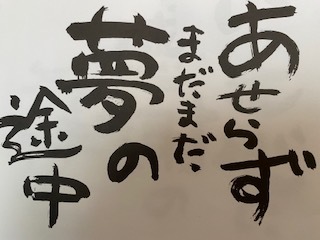 あせらず
まだまだ
夢の
途中